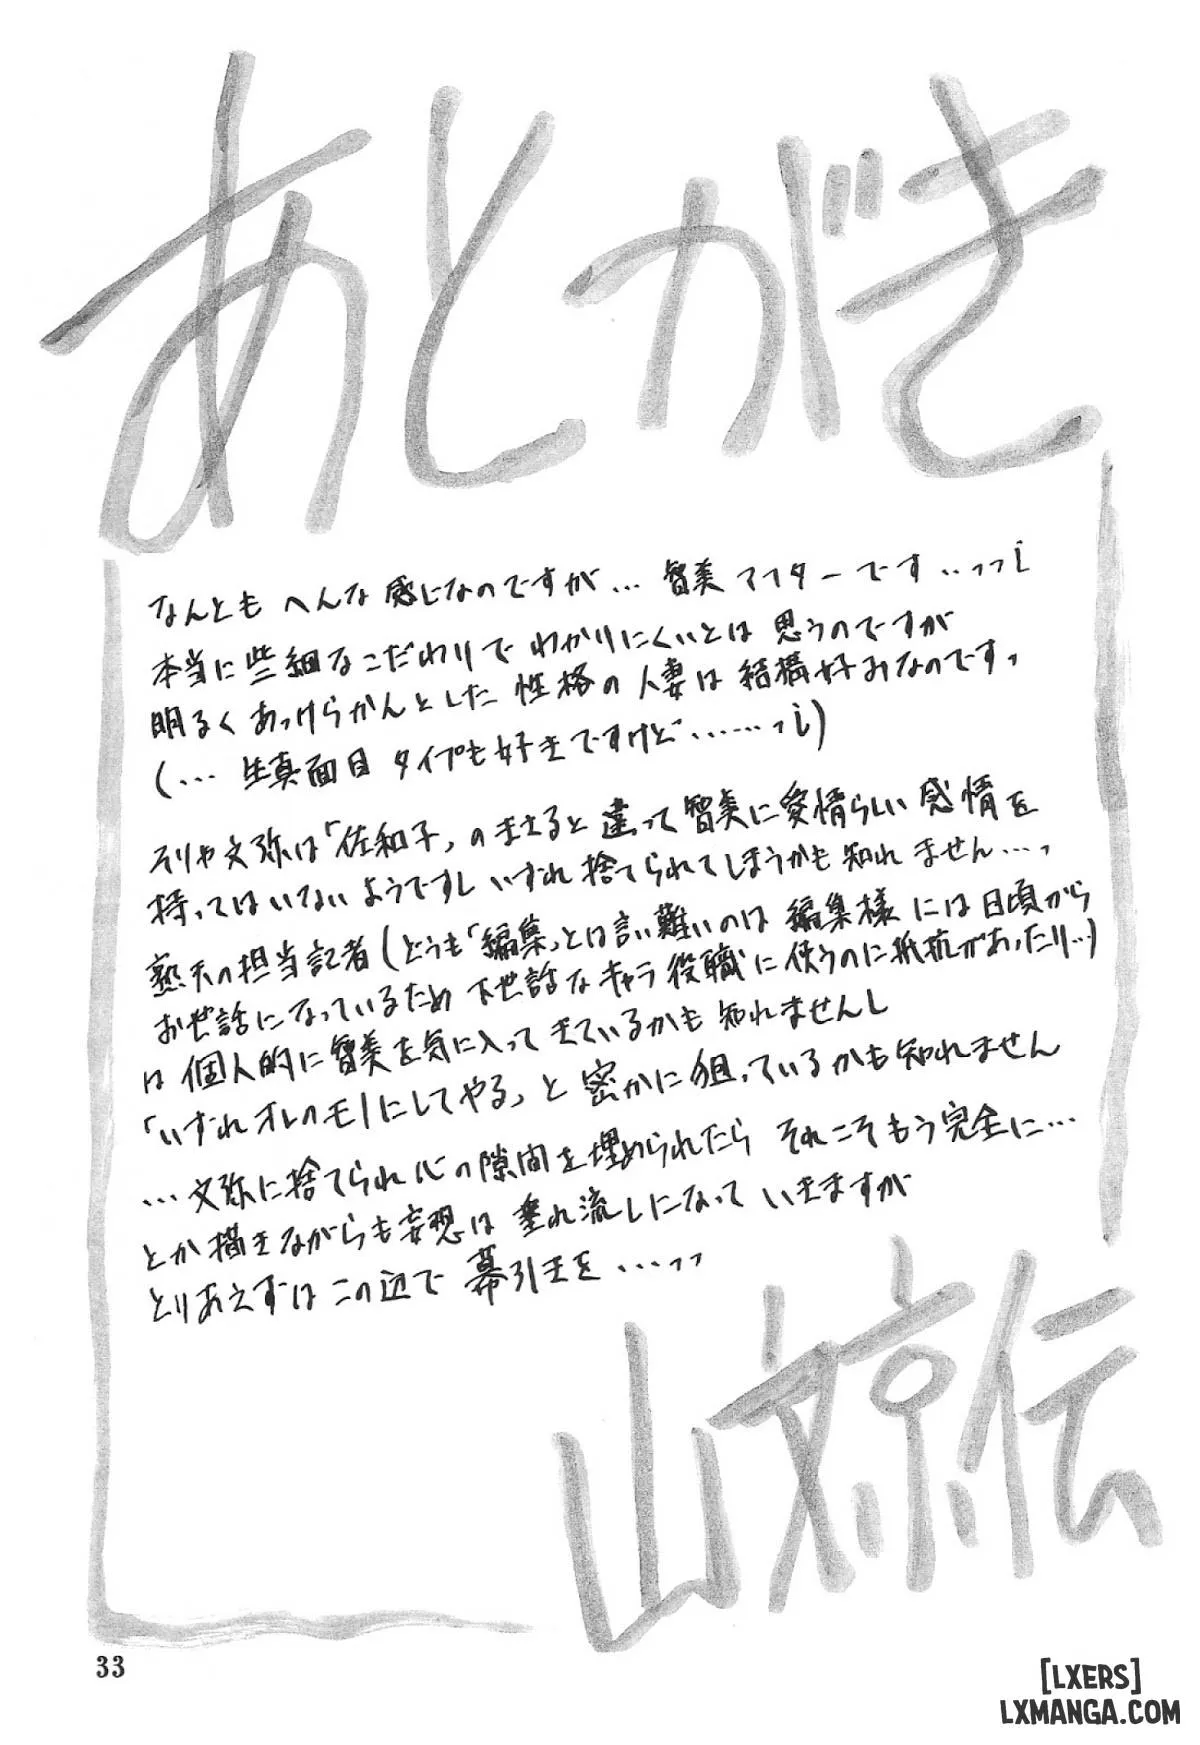 あとがき
なんとも へんな 感じなのですが… 智美アフターです‥‥っっi
本当に些細なこだわりで わかりにくいとは 思うのですが
明るく あっけらかんとした 性格の 人妻は 結構好みなのですっ
(… 生真面目 タイプも好きですけど………っi)
そりゃ文弥は「佐和子」の まさると 違って 智美に愛情らしい 感情を
持ってはいないようですし いずれ 捨てられてしまうかも 知れ ません…っ
の担当記者(どうも「編集」とは言い難いのは 編集様 には 日頃から
お世話になっているため 下世話な キャラ 役職に 使うのに抵抗があったり…)
は 個人的に智美を気に入って きているかも 知れませんし
「いずれオレのモノにしてやる」と 密かに狙っているかも知れません
…文弥に捨てられ 心の隙間を埋められたら それこそもう完全に…
とか 描きながらも妄想は 垂れ流しになって いきますが
とりあえずは この辺で 幕引きを…っっ
山文京伝
33
[LXERS]
LXMANGA.COM